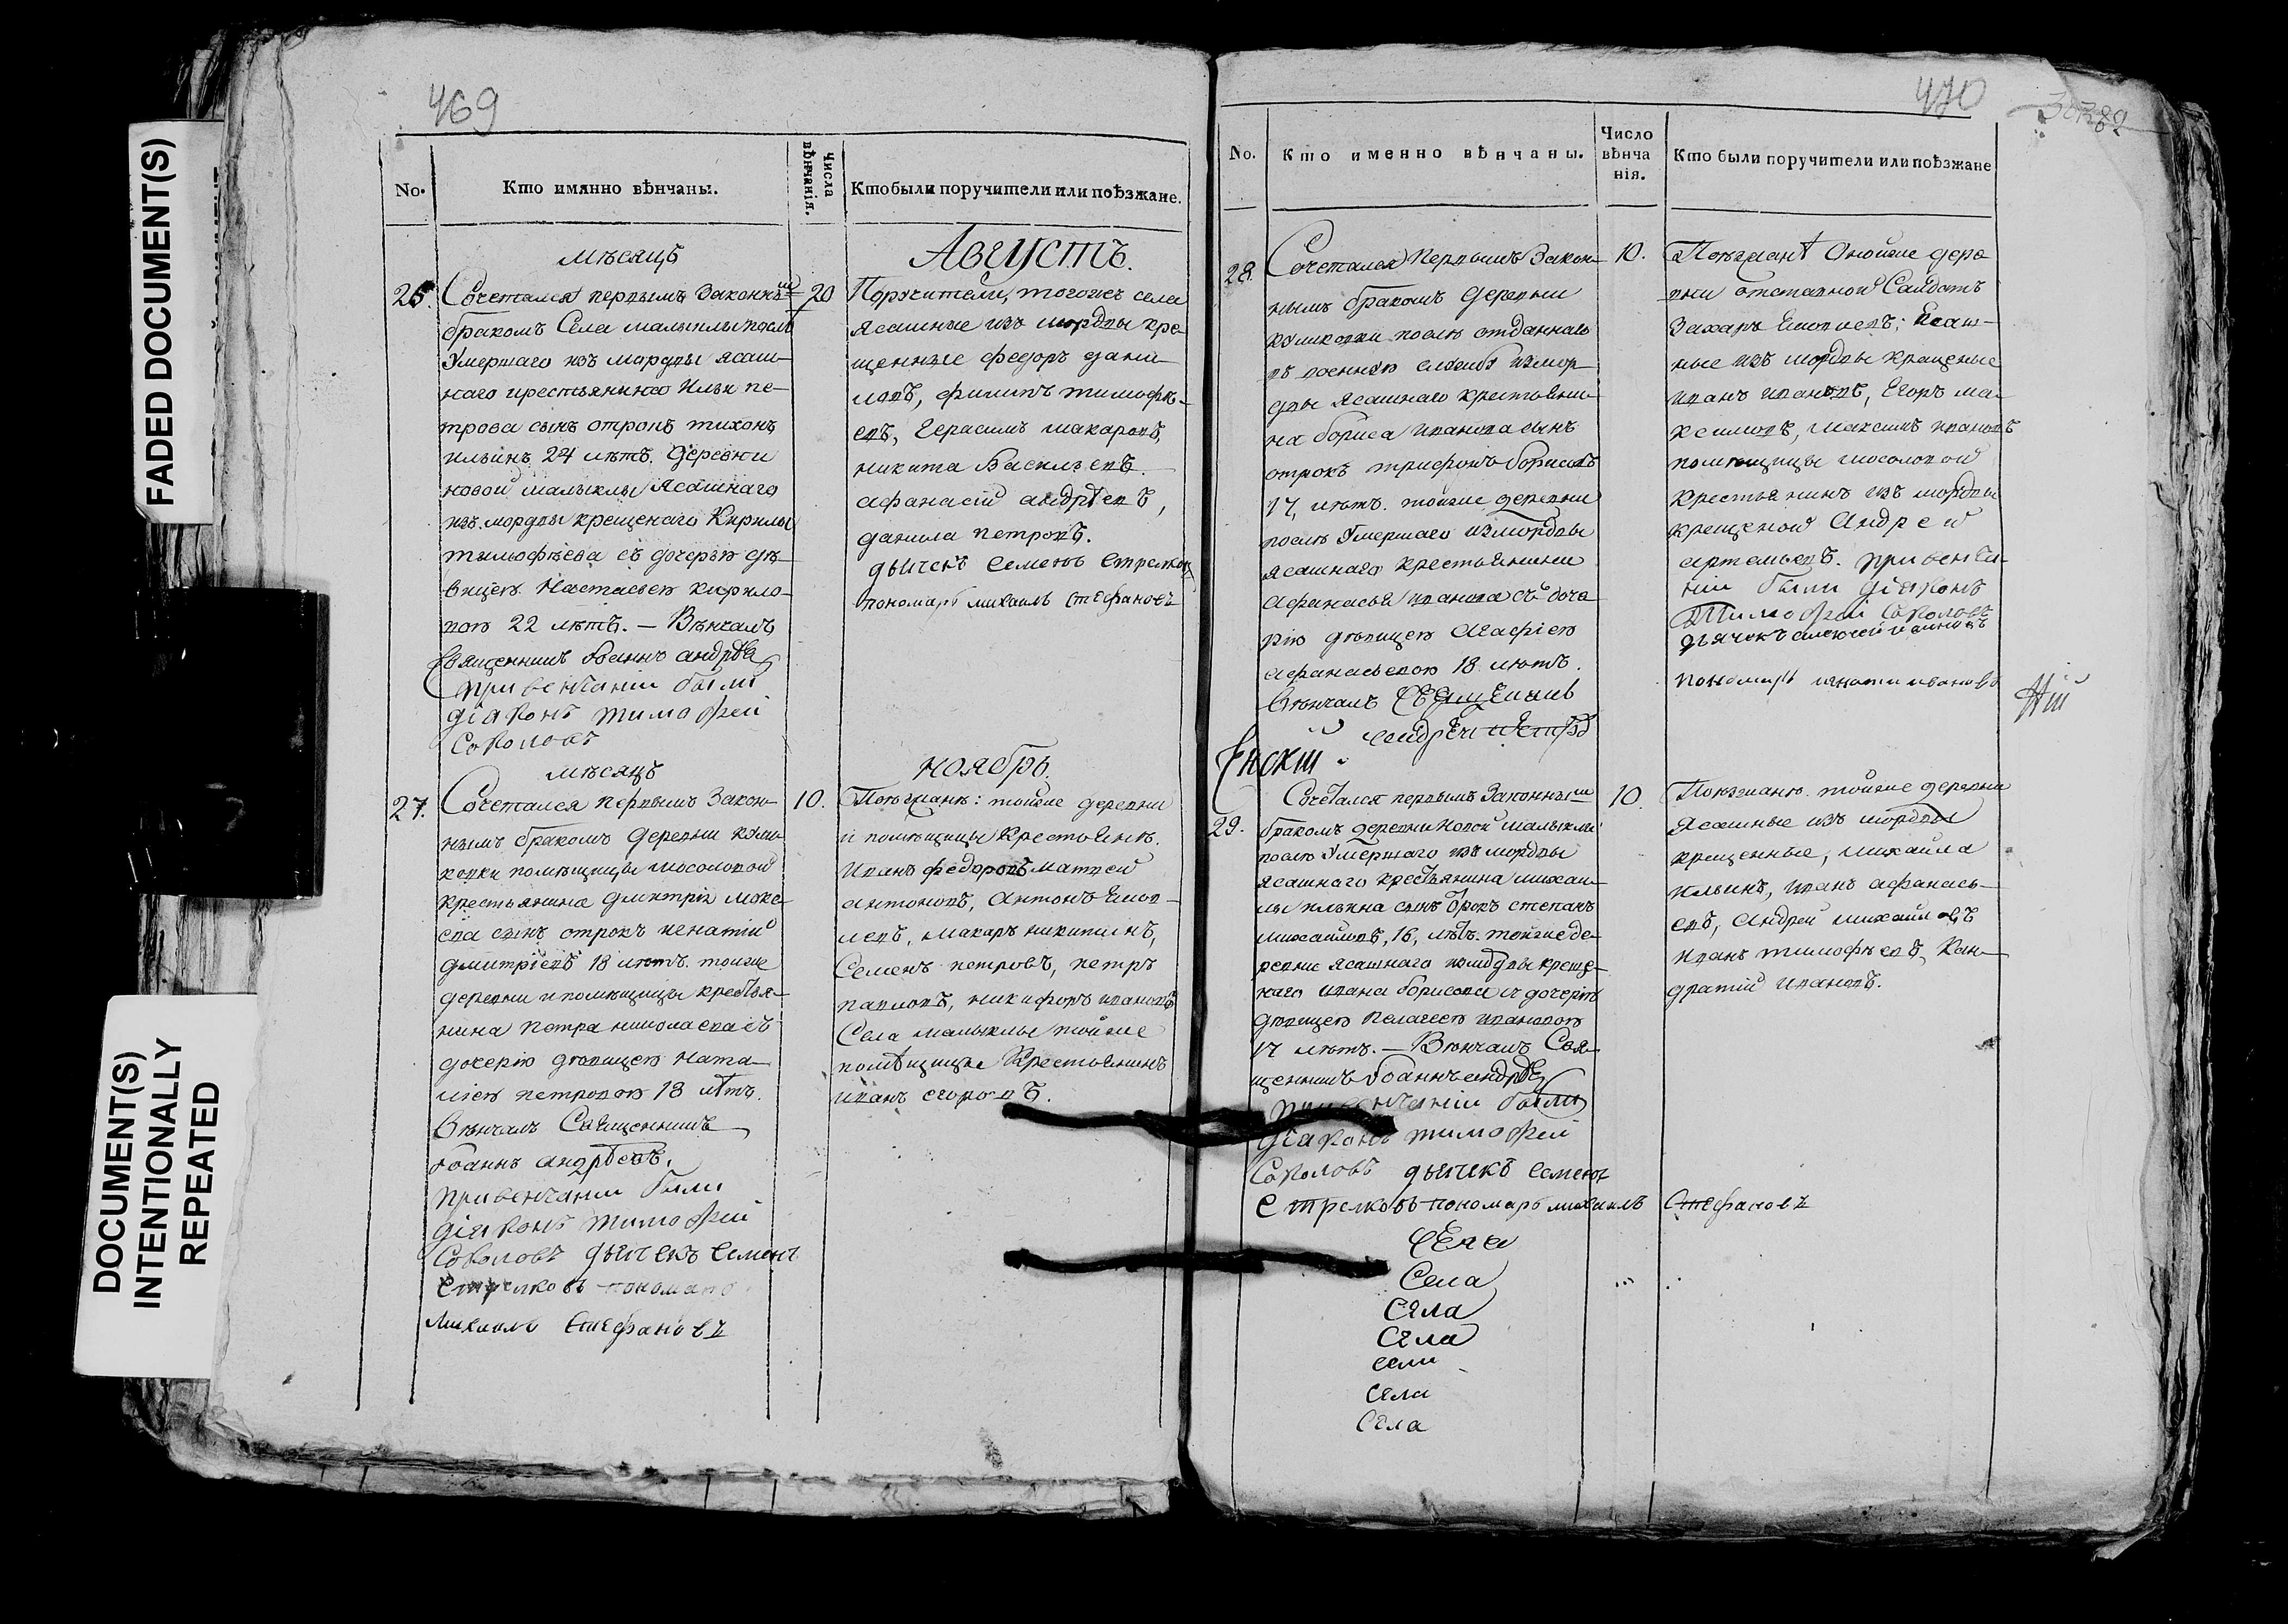 FADED DOCUMENT(S)
DOCUMENT(S)
INTENTIONALLY
REPEATED
469
No.
Кто имянно вѣнчаны.
Числа
вѣнчанія.
Кто были поручители или поѣзжане.
мѣсяцъ
Августъ.
25.
Сочетался первымъ Законнымъ
бракомъ Села малыклы послѣ
Умершаго изъ мордвы ясаш-
наго крестьянина Ильи пе-
трова сынъ отрокъ тихонъ
ильинъ 24 лѣтъ. Деревни
новой малыклы Ясашнаго
изъ мордвы крещенаго Кирилы
тимофѣева съ дочерью дѣ-
вицею Настасьею кирило-
вою 22 лѣтъ. — Вѣнчалъ
Священникъ Иоаннъ андрѣевъ
при венчании были
діяконъ тимофей
Соколовъ
20
Поручители, тогожъ села
ясашные изъ мордвы кре-
щенные федоръ дани-
ловъ, филипъ тимофѣ-
евъ, Герасимъ макаровъ,
никита Васильевъ.
афанасій андрѣевъ,
данила петровъ.
дьячекъ Семенъ Стрелковъ
пономарь михаилъ Стефановъ
мѣсяцъ
ноябрь.
27.
Сочетался первымъ Закон-
нымъ бракомъ деревни кули-
ковки помѣщицы мосоловой
крестьянина дмитрия
сынъ отрокъ игнатій
дмитріевъ 18 лѣтъ. тойже
деревни и помѣщицы крестья-
нина петра николаева съ
дочерію дѣвицею ната-
ліею петровою 18 лѣтъ.
Вѣнчалъ Священникъ
Иоаннъ андрѣевъ.
при венчании были
діяконъ тимофей
Соколовъ дьячекъ Семенъ
Стрелковъ пономарь
Михаилъ Стефановъ
10.
Поѣзжанѣ: тойже деревни
и помѣщицы Крестьянѣ.
Иванъ федоровъ матвей
антоновъ, Антонъ Емел-
левъ, макаръ никитинъ,
Семенъ петровъ, петръ
павловъ, никифоръ ивановъ
Села малыклы тойже
помѣщицы Крестьянинъ
иванъ егоровъ.
470
No.
Кто именно вѣнчаны.
Число
вѣнча
нія.
Кто были поручители или поѣзжане
28.
Сочетался первымъ Закон-
нымъ бракомъ деревни
куликовки послѣ отданнаго
въ военную службу измор-
двы ясашнаго крестьяни-
на бориса иванова сынъ
отрокъ трифонъ борисовъ
17, лѣтъ. тойже деревни
послѣ Умершаго измордвы
ясашнаго крестьянина
афанасья иванова съ доче-
рію дѣвицею Агафіею
афанасьевою 18 лѣтъ.
Вѣнчалъ Священникъ
андрей петровъ
10.
Поѣзжанѣ Онойже дере
вни отставной Салдатъ
Захаръ ; Ясаш-
ные изъ мордвы крещеные
иванъ ивановъ, Егоръ ма-
ксимовъ, максимъ ивановъ
помѣщицы мосоловой
крестьянинъ изъ мордвы
крещеной Андрей
артемьевъ. при венча-
нии были діяконъ
Тимофей Соколовъ
дьячекъ алексей
пономарь игнати ивановъ
29.
Сочетался первымъ Законнымъ
бракомъ деревни новой малыклы
послѣ Умершаго изъ мордвы
ясашнаго крестьянина михаи-
лы ильина сынъ отрокъ степанъ
михайловъ, 16, лѣтъ. тойже де-
ревни ясашнаго измордвы креще-
наго ивана борисова съ дочерью
дѣвицею Пелагеею ивановою
17 лѣтъ. — Вѣнчалъ Свя-
щенникъ Иоаннъ андрѣевъ
при венчании были
діяконъ тимофей
Соколовъ дьячекъ Семенъ
Стрелковъ пономарь михаилъ Стефановъ
Села
Села
Села
Села
Села
Села
10.
Поѣзжанѣ. тойже деревни
Ясашные изъ мордвы
крещенные, михайла
ильинъ, иванъ афанась-
евъ, Андрей михайловъ
иванъ тимофѣевъ, Кон-
дратій ивановъ.